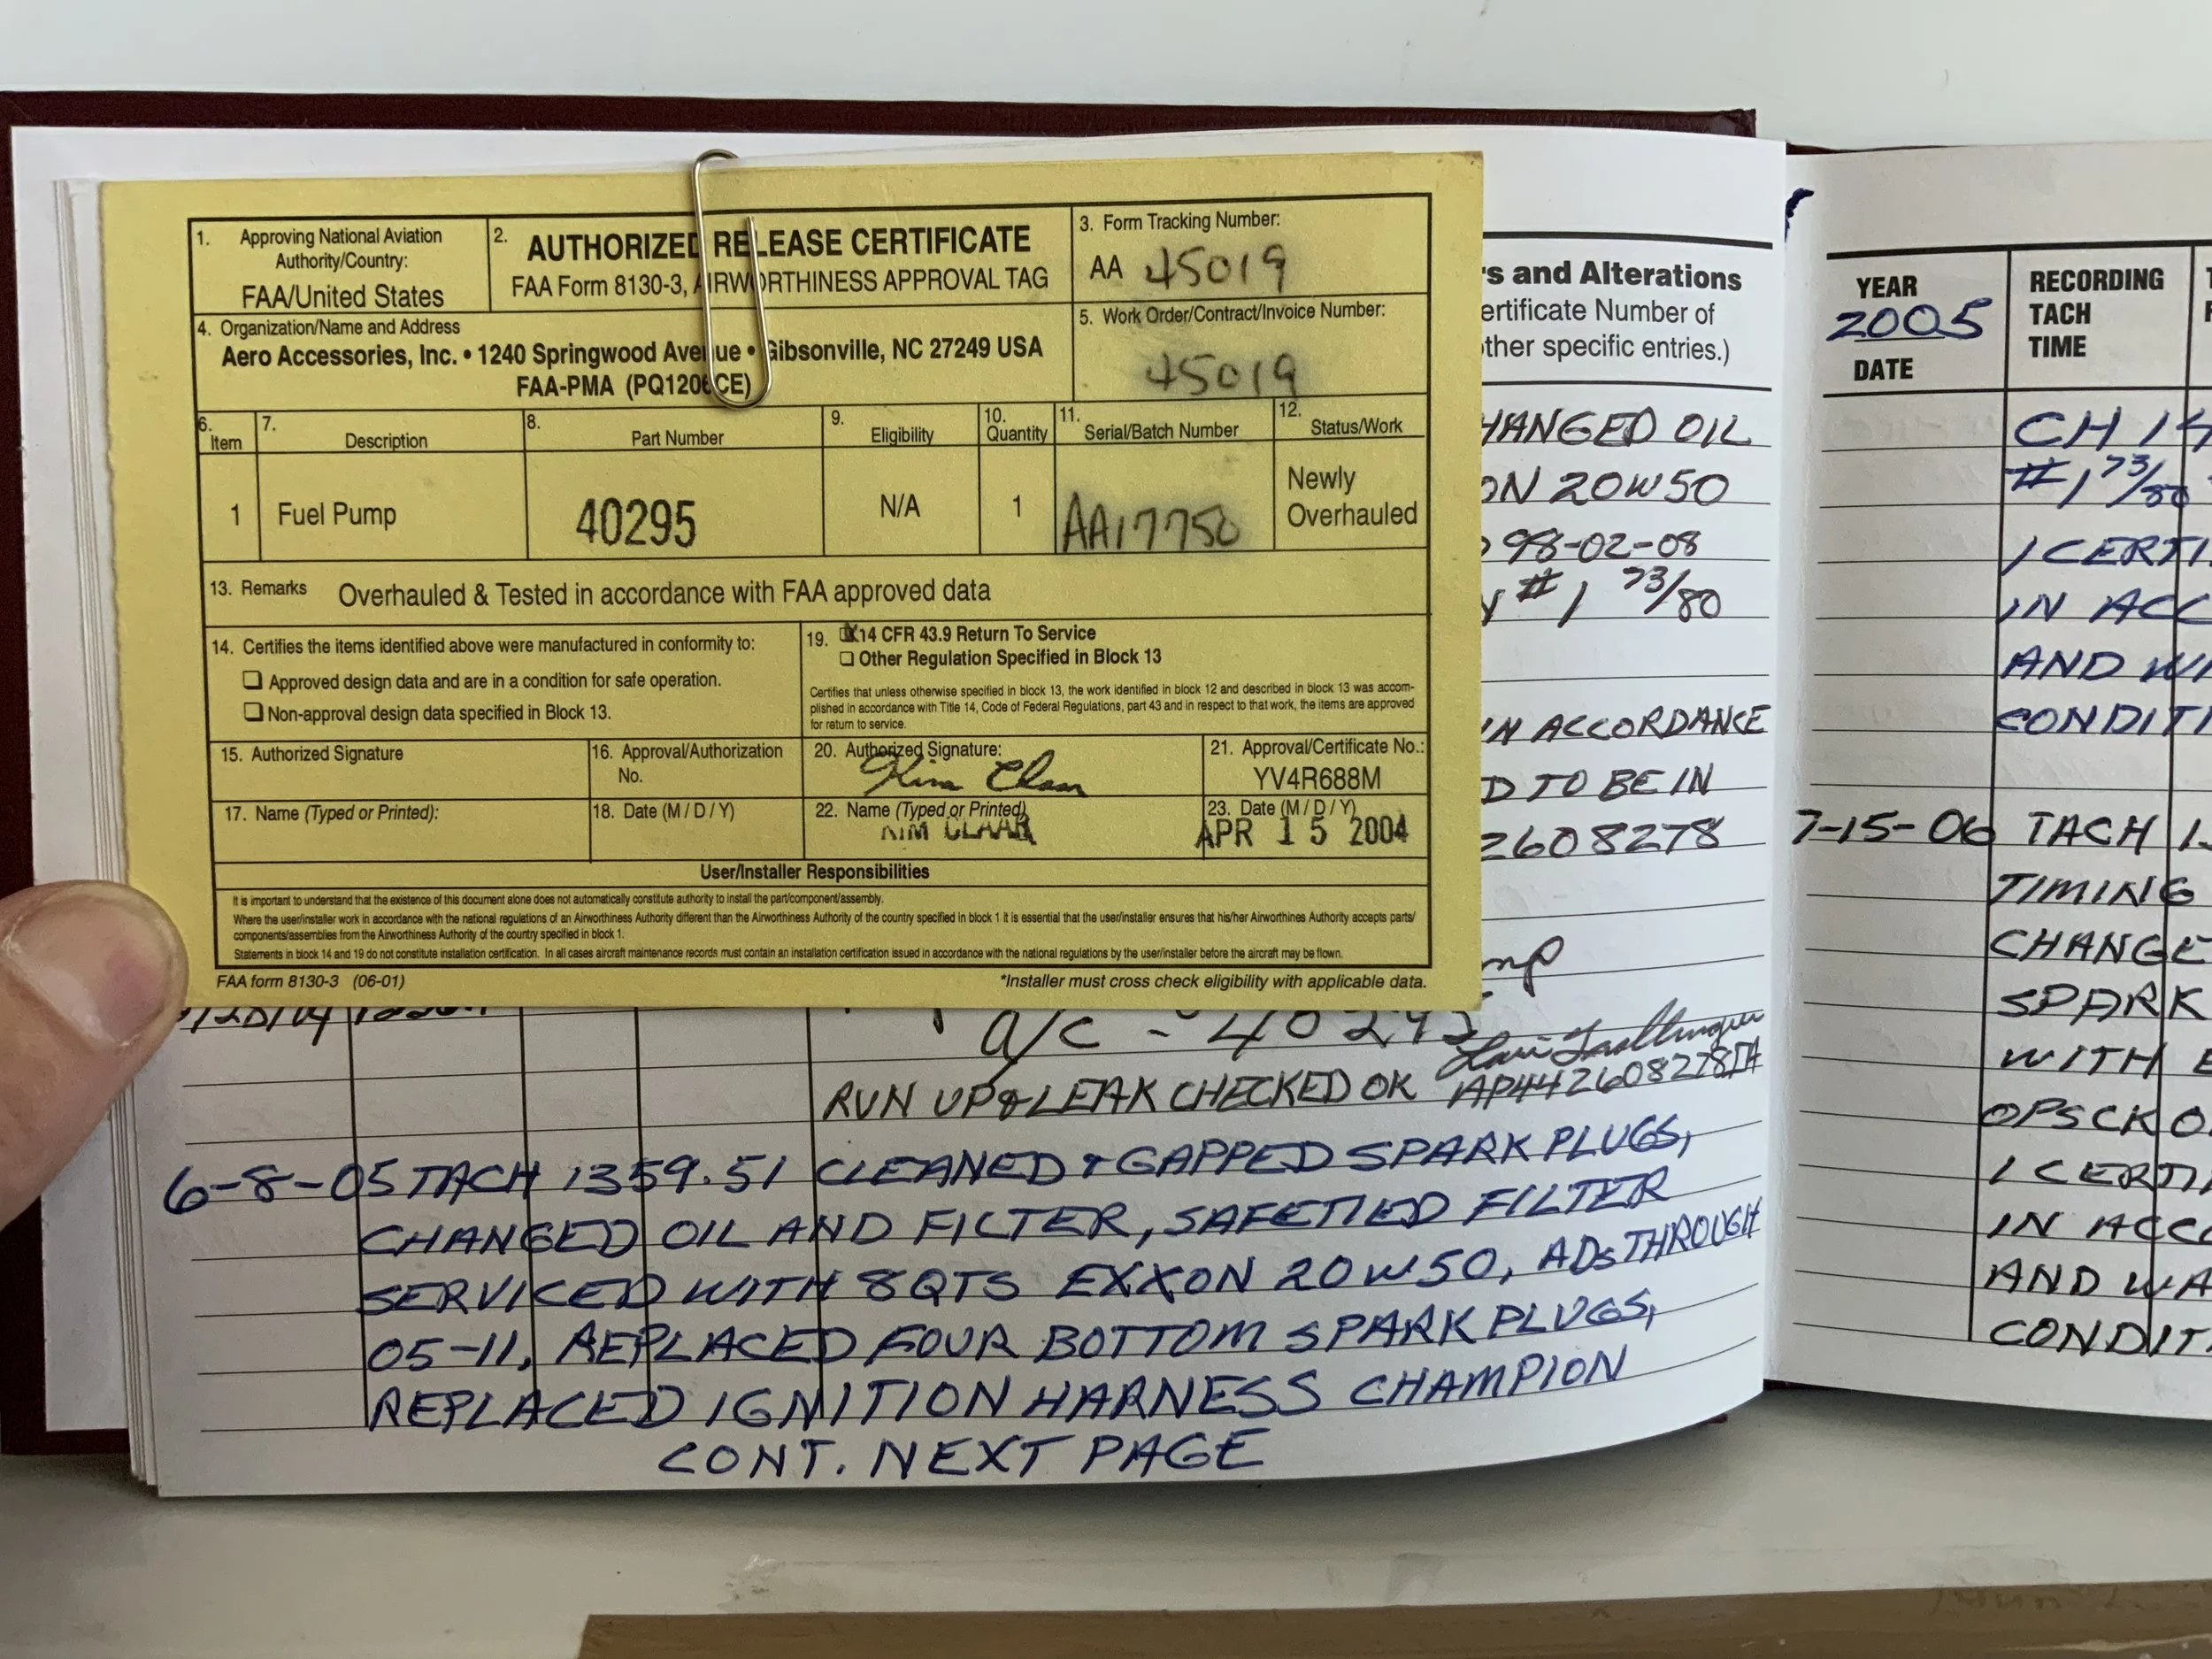 1. Approving National Aviation
Authority/Country:
FAA/United States
2. AUTHORIZED RELEASE CERTIFICATE
FAA Form 8130-3, AIRWORTHINESS APPROVAL TAG
3. Form Tracking Number:
AA 45019
4. Organization/Name and Address
Aero Accessories, Inc. • 1240 Springwood Avenue • Gibsonville, NC 27249 USA
FAA-PMA (PQ1206CE)
5. Work Order/Contract/Invoice Number:
45019
6. Item
7. Description
8. Part Number
9. Eligibility
10. Quantity
11. Serial/Batch Number
12. Status/Work
1 Fuel Pump 40295 N/A 1 AA17750 Newly
Overhauled
13. Remarks Overhauled & Tested in accordance with FAA approved data
14. Certifies the items identified above were manufactured in conformity to:
Approved design data and are in a condition for safe operation.
Non-approval design data specified in Block 13.
19. 14 CFR 43.9 Return To Service
Other Regulation Specified in Block 13
Certifies that unless otherwise specified in block 13, the work identified in block 12 and described in block 13 was accom-
plished in accordance with Title 14, Code of Federal Regulations, part 43 and in respect to that work, the items are approved
for return to service.
15. Authorized Signature
16. Approval/Authorization
No.
20. Authorized Signature:
Kim Claar
21. Approval/Certificate No.:
YV4R688M
17. Name (Typed or Printed):
18. Date (M / D / Y)
22. Name (Typed or Printed)
KIM CLAAR
23. Date (M / D / Y)
APR 15 2004
User/Installer Responsibilities
It is important to understand that the existence of this document alone does not automatically constitute authority to install the part/component/assembly.
Where the user/installer work in accordance with the national regulations of an Airworthiness Authority different than the Airworthiness Authority of the country specified in block 1 it is essential that the user/installer ensures that his/her Airworthines Authority accepts parts/
components/assemblies from the Airworthiness Authority of the country specified in block 1.
Statements in block 14 and 19 do not constitute installation certification. In all cases aircraft maintenance records must contain an installation certification issued in accordance with the national regulations by the user/installer before the aircraft may be flown.
FAA form 8130-3 (06-01)
*Installer must cross check eligibility with applicable data.
s and Alterations
ertificate Number of
ther specific entries.)
HANGED OIL
ON 20W50
98-02-08
Y #1 73/80
IN ACCORDANCE
D TO BE IN
2608278
mp
a/c - 40295
RUN UP & LEAK CHECKED OK AP442608278IA
6-8-05 TACH 1359.51 CLEANED & GAPPED SPARK PLUGS,
CHANGED OIL AND FILTER, SAFETIED FILTER
SERVICED WITH 8QTS EXXON 20W50, ADs THROUGH
05-11, REPLACED FOUR BOTTOM SPARK PLUGS,
REPLACED IGNITION HARNESS CHAMPION
CONT. NEXT PAGE
YEAR
2005
DATE
RECORDING
TACH
TIME
CH 14
#1 73/80
I CERTI
IN ACC
AND WA
CONDITI
7-15-06 TACH 1
TIMING
CHANGE
SPARK
WITH
OPSCK O
I CERTI
IN ACC
AND WA
CONDIT